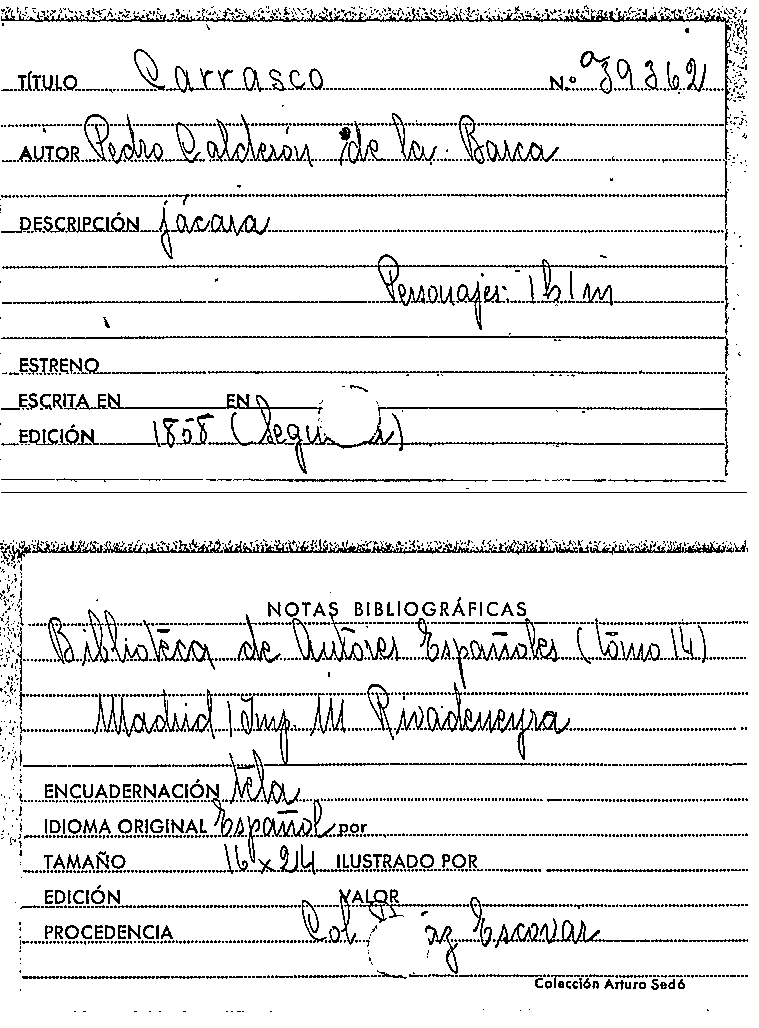 TÍTULO Carrasco N.º 39362
AUTOR Pedro Calderón de la Barca
DESCRIPCIÓN jácara
Personajes: 1h 1m
ESTRENO
ESCRITA EN EN
EDICIÓN 1858
NOTAS BIBLIOGRÁFICAS
Biblioteca de Autores Españoles (tomo 14)
Madrid / Imp. M Rivadeneyra
ENCUADERNACIÓN tela
IDIOMA ORIGINAL Español por
TAMAÑO 16 x 24 ILUSTRADO POR
EDICIÓN VALOR
PROCEDENCIA Col Escovar
Colección Arturo Sedó